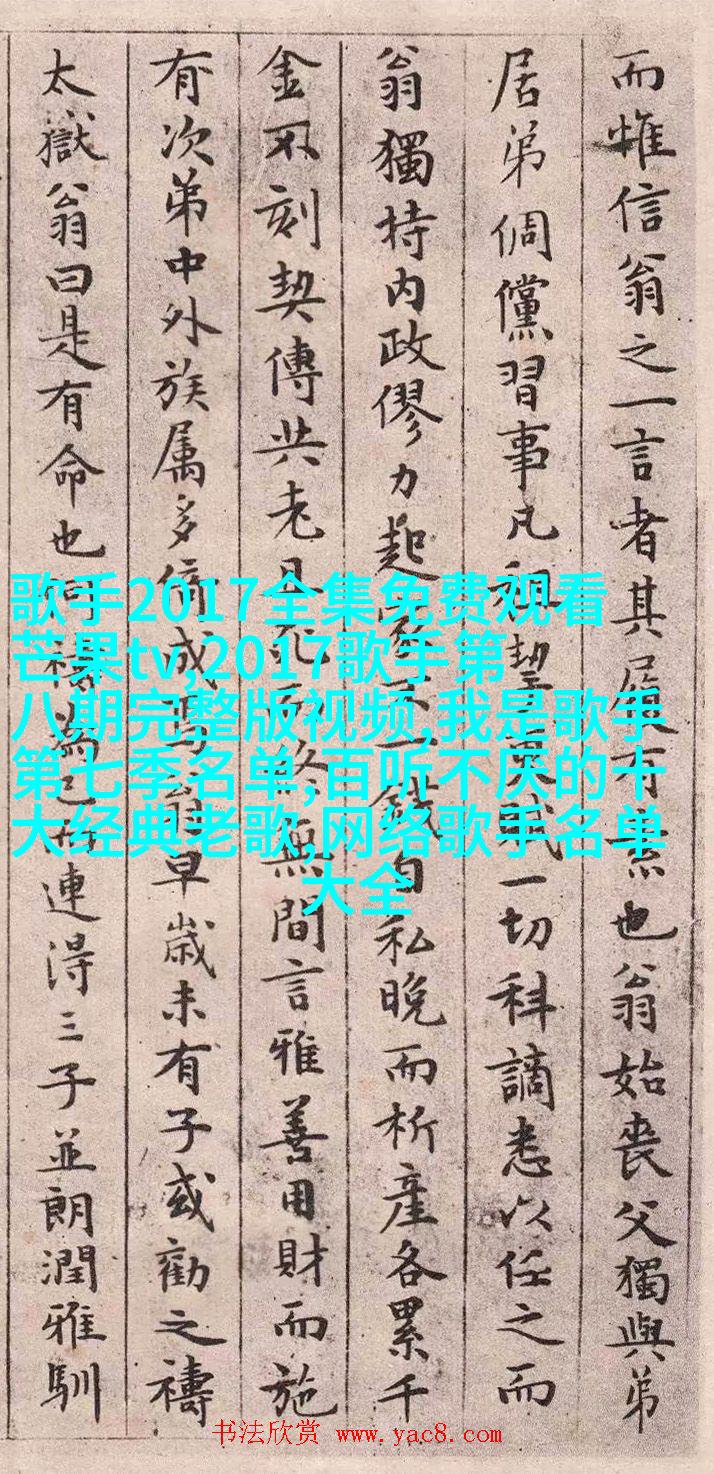 而惟信翁之一言者其履有素也翁始喪父獨與弟
居弟倜儻習事凡租一切科謫悉以任之而
翁獨持内政僇力起不一錢自私晚而析產各累千
金不刻契傳共老且死而終無間言雅善用財而施
有次弟中外族属多倚成翁早歲未有子或勸之禱
太嶽翁曰是有命也禱為已而連得三子並朗潤雅馴
歌手2017全集免费观看
芒果tv,2017歌手第
八期完整版视频,我是歌手
第七季名单,百听不厌的十
大经典老歌,网络歌手名单
大全
书法欣赏 www.yac8.com